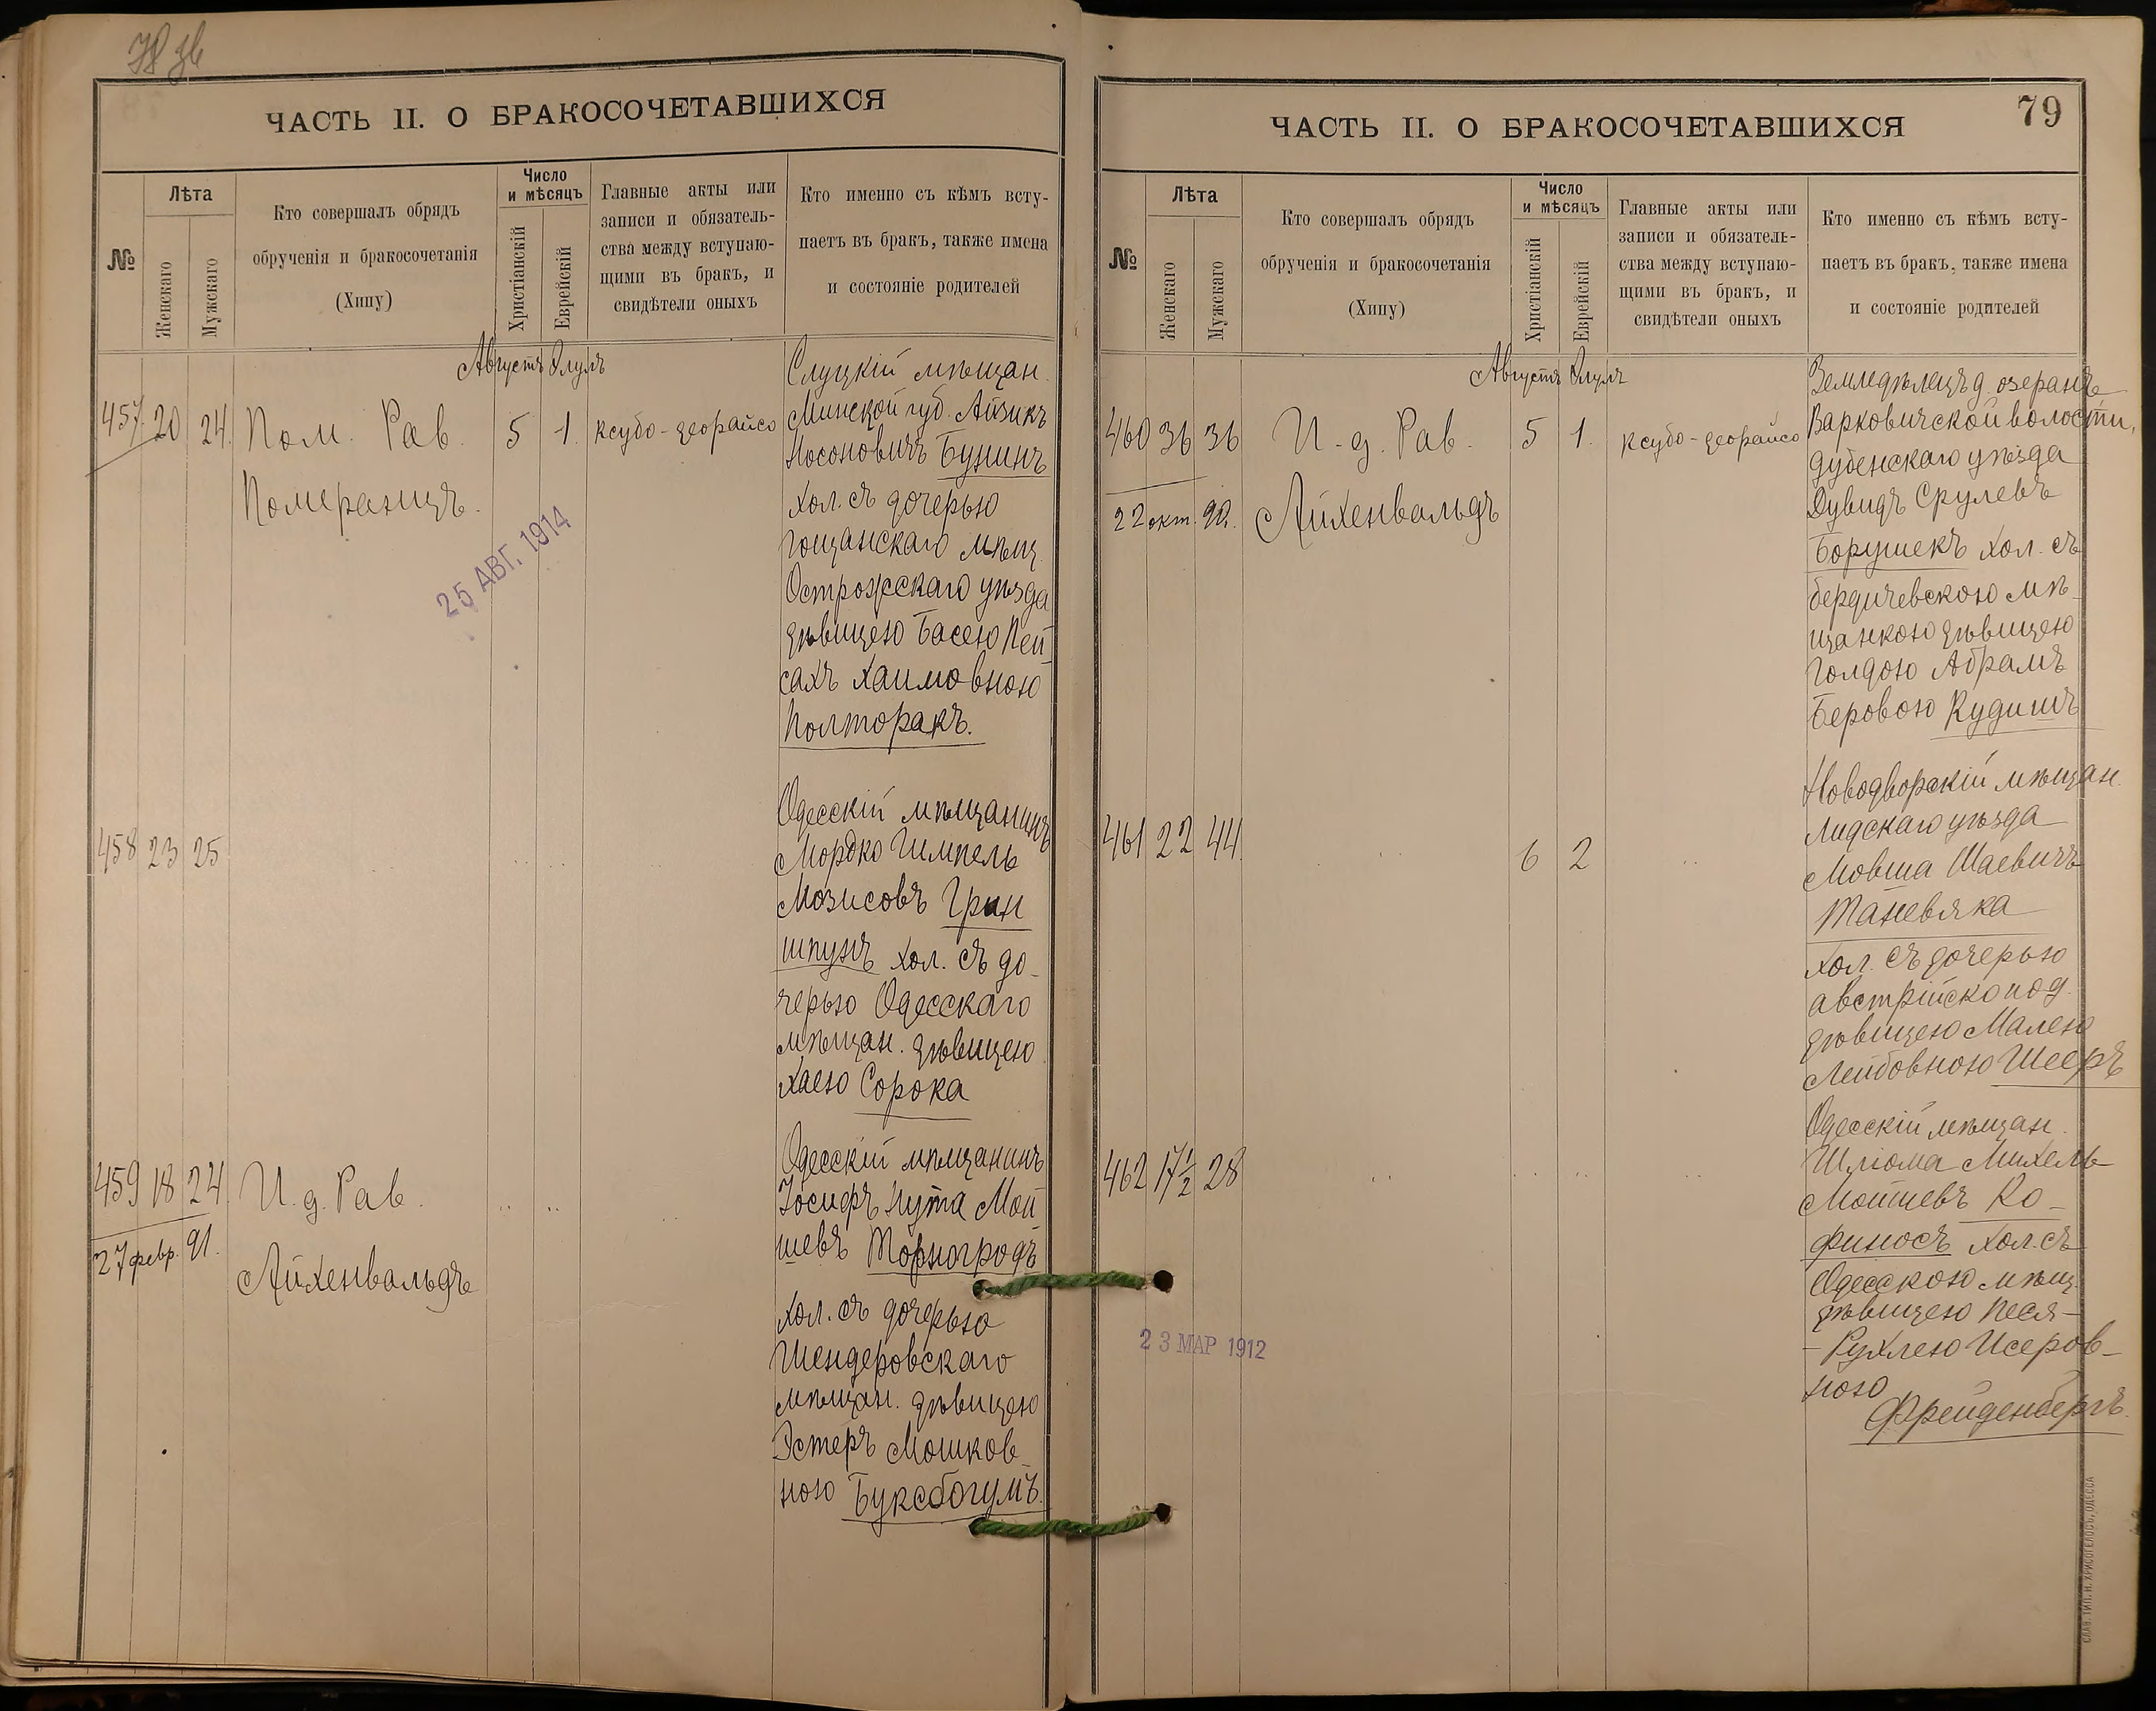 78 зв
ЧАСТЬ II. О БРАКОСОЧЕТАВШИХСЯ
№
Лѣта
Женскаго
Мужскаго
Кто совершалъ обрядъ
обрученія и бракосочетанія
(Хипу)
Число
и мѣсяцъ
Христіанскій
Еврейскій
Главные акты или
записи и обязатель-
ства между вступаю-
щими въ бракъ, и
свидѣтели оныхъ
Кто именно съ кѣмъ всту-
паетъ въ бракъ, также имена
и состояніе родителей
Августъ Элулъ
457 20 24. Пом. Рав. 5 1. ксубо-деорайсо
Померанцъ.
25 АВГ. 1914
Слуцкій мѣщан.
Минской губ. Айзикъ
Носоновичъ Бунинъ
хол. съ дочерью
гощанскаго мѣщ.
Острожскаго уѣзда
дѣвицею Басею Пей-
сахъ Хаимовною
Полторакъ.
458 23 25
Одесскій мѣщанинъ
Мордко Гимпель
Мозисовъ Грин
шпунъ хол. съ до-
черью Одесскаго
мѣщан. дѣвицею
Хаею Сорока
459 18 24. И. д. Рав.
27 февр. 91.
Айхенвальдъ
Одесскій мѣщанинъ
Іосифъ Нута Мой
шевъ Торногродъ
хол. съ дочерью
Шендеровскаго
мѣщан. дѣвицею
Эстеръ Мошков-
ною Буксбогумъ.
79
ЧАСТЬ II. О БРАКОСОЧЕТАВШИХСЯ
№
Лѣта
Женскаго
Мужскаго
Кто совершалъ обрядъ
обрученія и бракосочетанія
(Хипу)
Число
и мѣсяцъ
Христіанскій
Еврейскій
Главные акты или
записи и обязатель-
ства между вступаю-
щими въ бракъ, и
свидѣтели оныхъ
Кто именно съ кѣмъ всту-
паетъ въ бракъ, также имена
и состояніе родителей
Августъ Элулъ
460 36 36 И-д. Рав. 5 1. ксубо-деорайсо
22 окт. 90. Айхенвальдъ
Земледѣлецъ д. озеранъ
Варковичской волости,
дубенскаго уѣзда
Дувидъ Срулевъ
Борушекъ хол. съ
бердичевскою мѣ-
щанкою дѣвицею
Голдою Абрамъ
Беровою Кудишъ
461 22 44. 6 2
Новодворскій мѣщан.
Лидскаго уѣзда
Мовша Шаевичъ
Таневяка
хол. съ дочерью
австрійско под.
дѣвицею Малею
Лейбовною Шееръ
462 17 1/2 28
Одесскій мѣщан.
Шліома Михель
Мошевъ Ко-
финосъ хол. съ
Одесскою мѣщ.
дѣвицею Песя-
-Рухлею Исеров-
ною
Фрейденбергъ.
23 МАР 1912
СЛАВ. ТИП. Н. ХРИСОГЕЛОСЪ, ОДЕССА